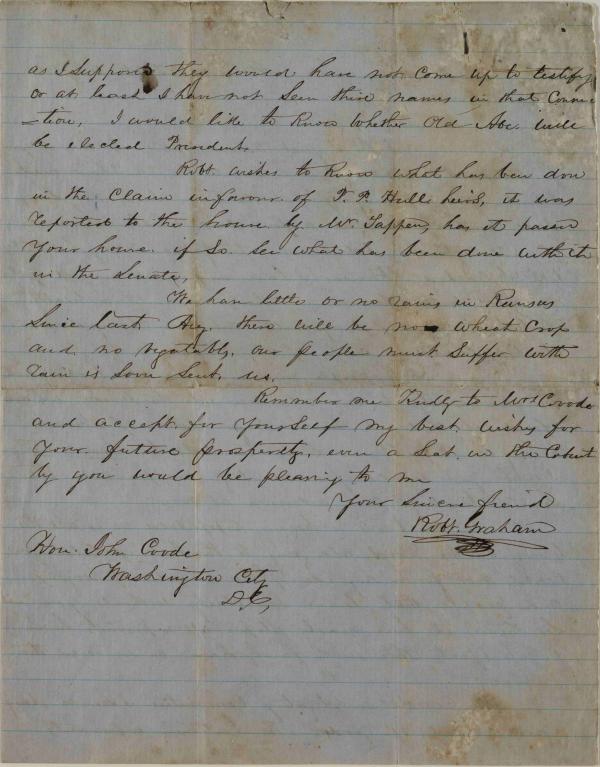 as I suppose they would have not come up to testify
or at least I have not seen thire names in that connec
-tion, I would like to know whether Old Abe will
be elected President.
Robt. wishes to know what has been don
in the Claim in favour of T. P. Hulls heirs, it was
reported to the house by Mr. Tappen, has it passed
your house if so see what has been done with it
in the Senate,
We have little or no rains in Kansas
Since last Aug. there will be no wheat Crop
and no vegatabls, our people must Suffer with
rain is Soon Sent us.
Remember me Kindly to Mrs Covode
and accept for yourself my best wishes for
your future prosperty, even a Seat in the Cabinet
by you would be pleasing to me
Your Sincere friend
Robt. Graham
Hon. John Covode
Washington City
D.C,